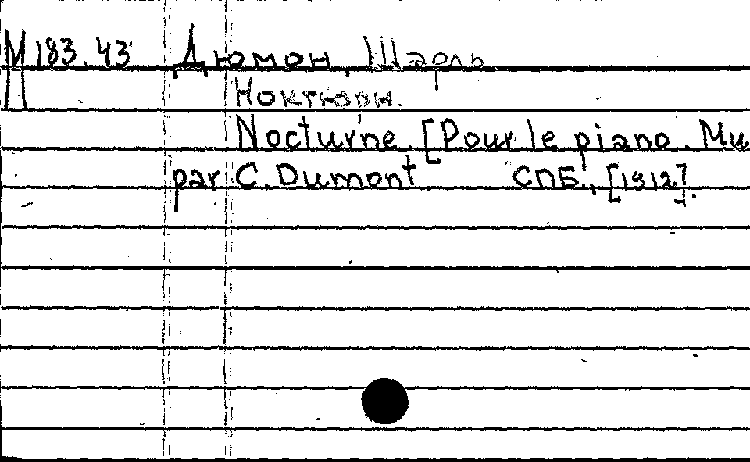 М 183.43 Дюмон, Шарль
Ноктюрн.
Nocturne. [Pour le piano. Mu
par C. Dumont. СПБ., [1912].